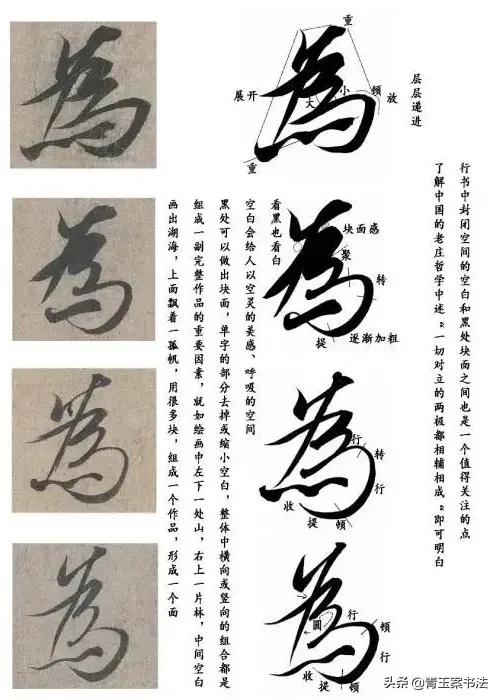 行书中封闭空间的空白和黑处块面之间也是一个值得关注的点
了解中国的老庄哲学中述“一切对立的两极都相辅相成“即可明白
层层递进
為
重
展开
大
小
頓
放
重
為
块面感
聚
转
提
逐渐加粗
為
行
转
行
收
提
頓
為
圆
行
頓
行
收
提
頓
看黑也看白
空白会给人以空灵的美感、呼吸的空间
黑处可以做出块面，单字的部分去掉或缩小空白，整体中横向或竖向的组合都是
组成一副完整作品的重要因素，就如绘画中左下一处山，右上一片林，中间空白
画出湖海，上面飘着一孤帆，用很多块，组成一个作品，形成一个面
為
為
為
為
头条 @青玉案书法